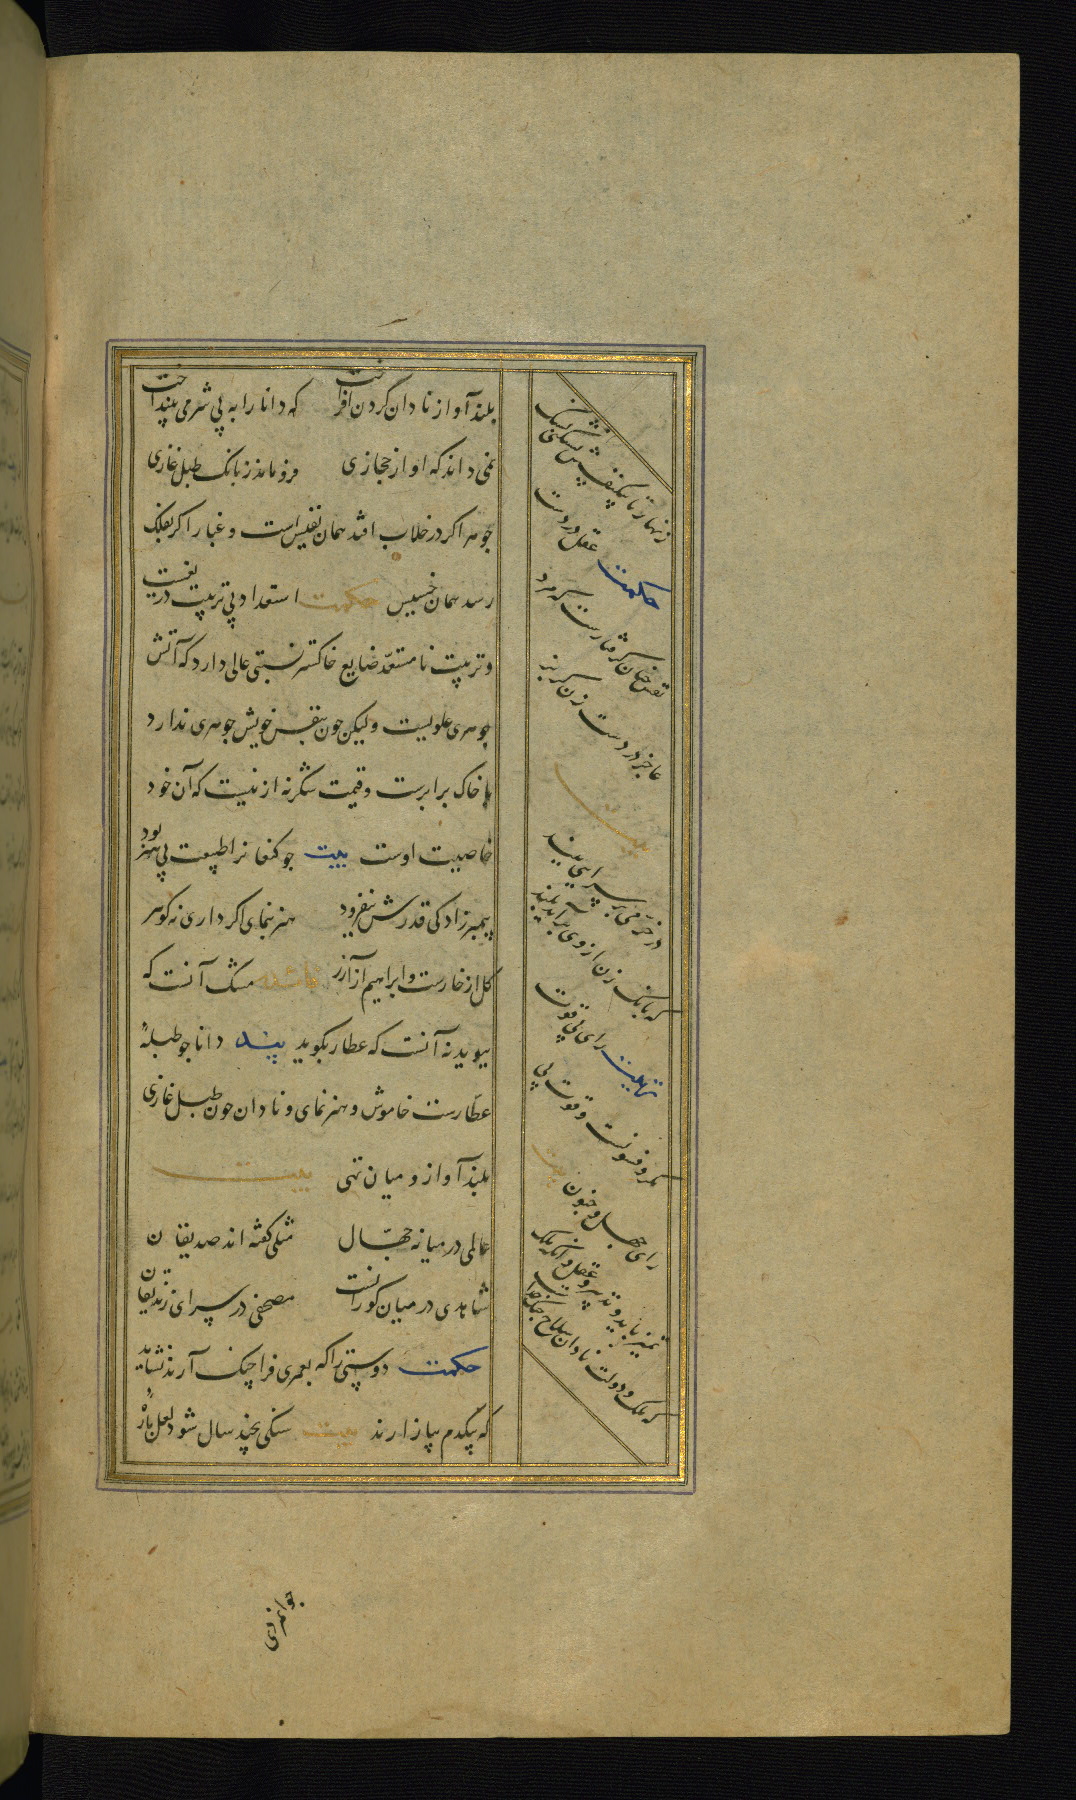 بلند آواز نادان گردن افراخت که دانا را به بی شرمی بینداخت
نمی داند که آواز حجازی فرو ماند ز بانک طبل غازی
جوهر اکر در خلاب افتد همان نفیس است و غبار اکر بفلک
رسد همان خسیس حکمت استعداد بی تربیت دریغست
و تربیت نامستعد ضایع خاکستر نسبتی عالی دارد که آتش
جوهری علویست ولیکن جون بنفس خویش جوهری ندارد
با خاک برابرست و قیمت شکر نه از نیست که آن خود
خاصیت اوست بیت جو کنعانرا طبیعت بی هنر بود
پیمبرزادکی قدرش نیفزود هنر بنمای اکر داری نه کوهر
کل از خارست و ابراهیم از آزر مشک آنست که
ببوید نه آنست که عطار بکوید پند دانا جو طبله
عطارست خاموش و هنر نمای و نادان جون طبل غازی
بلند آواز و میان تهی بیت
عالمی در میانه جهال مثلی کفته اند صدیقان
شاهدی در میان کورانست مصحفی در سرای زندیقان
حکمت دوستی را که بعمری فراچنک آرند نشاید
که بیکدم بیازارند بیت سنکی بچند سال شود لعل پاره
زنهار تا بیکنفسش نشکنی بسنک
حکمت عقل در دست
نفس جنان کرفتارست که مرد
عاجز در دست زن کربز
بیت
در خرمی بر سرایی ببند
که بانک زن از وی برآید بلند
رای بی قوت
مکر و فسونست و قوت بی
رای جهل و جنون بیت
تمیز باید و تدبیر و عقل وانکه ملک
که ملک و دولت نادان سلاح جنک خداست
جوانمردی